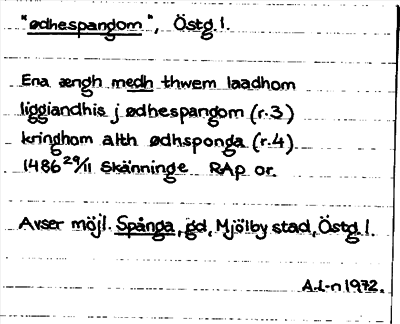 "ødhespangom", Östg. l.
Ena ængh medh thwem laadhom
liggiandhis j ødhespangom (r.3)
kringhom alth ødhsponga (r.4)
1486 29/11 Skänninge RAp or.
Avser möjl. Spånga, gd, Mjölby stad, Östg. l.
A.L-n 1972.